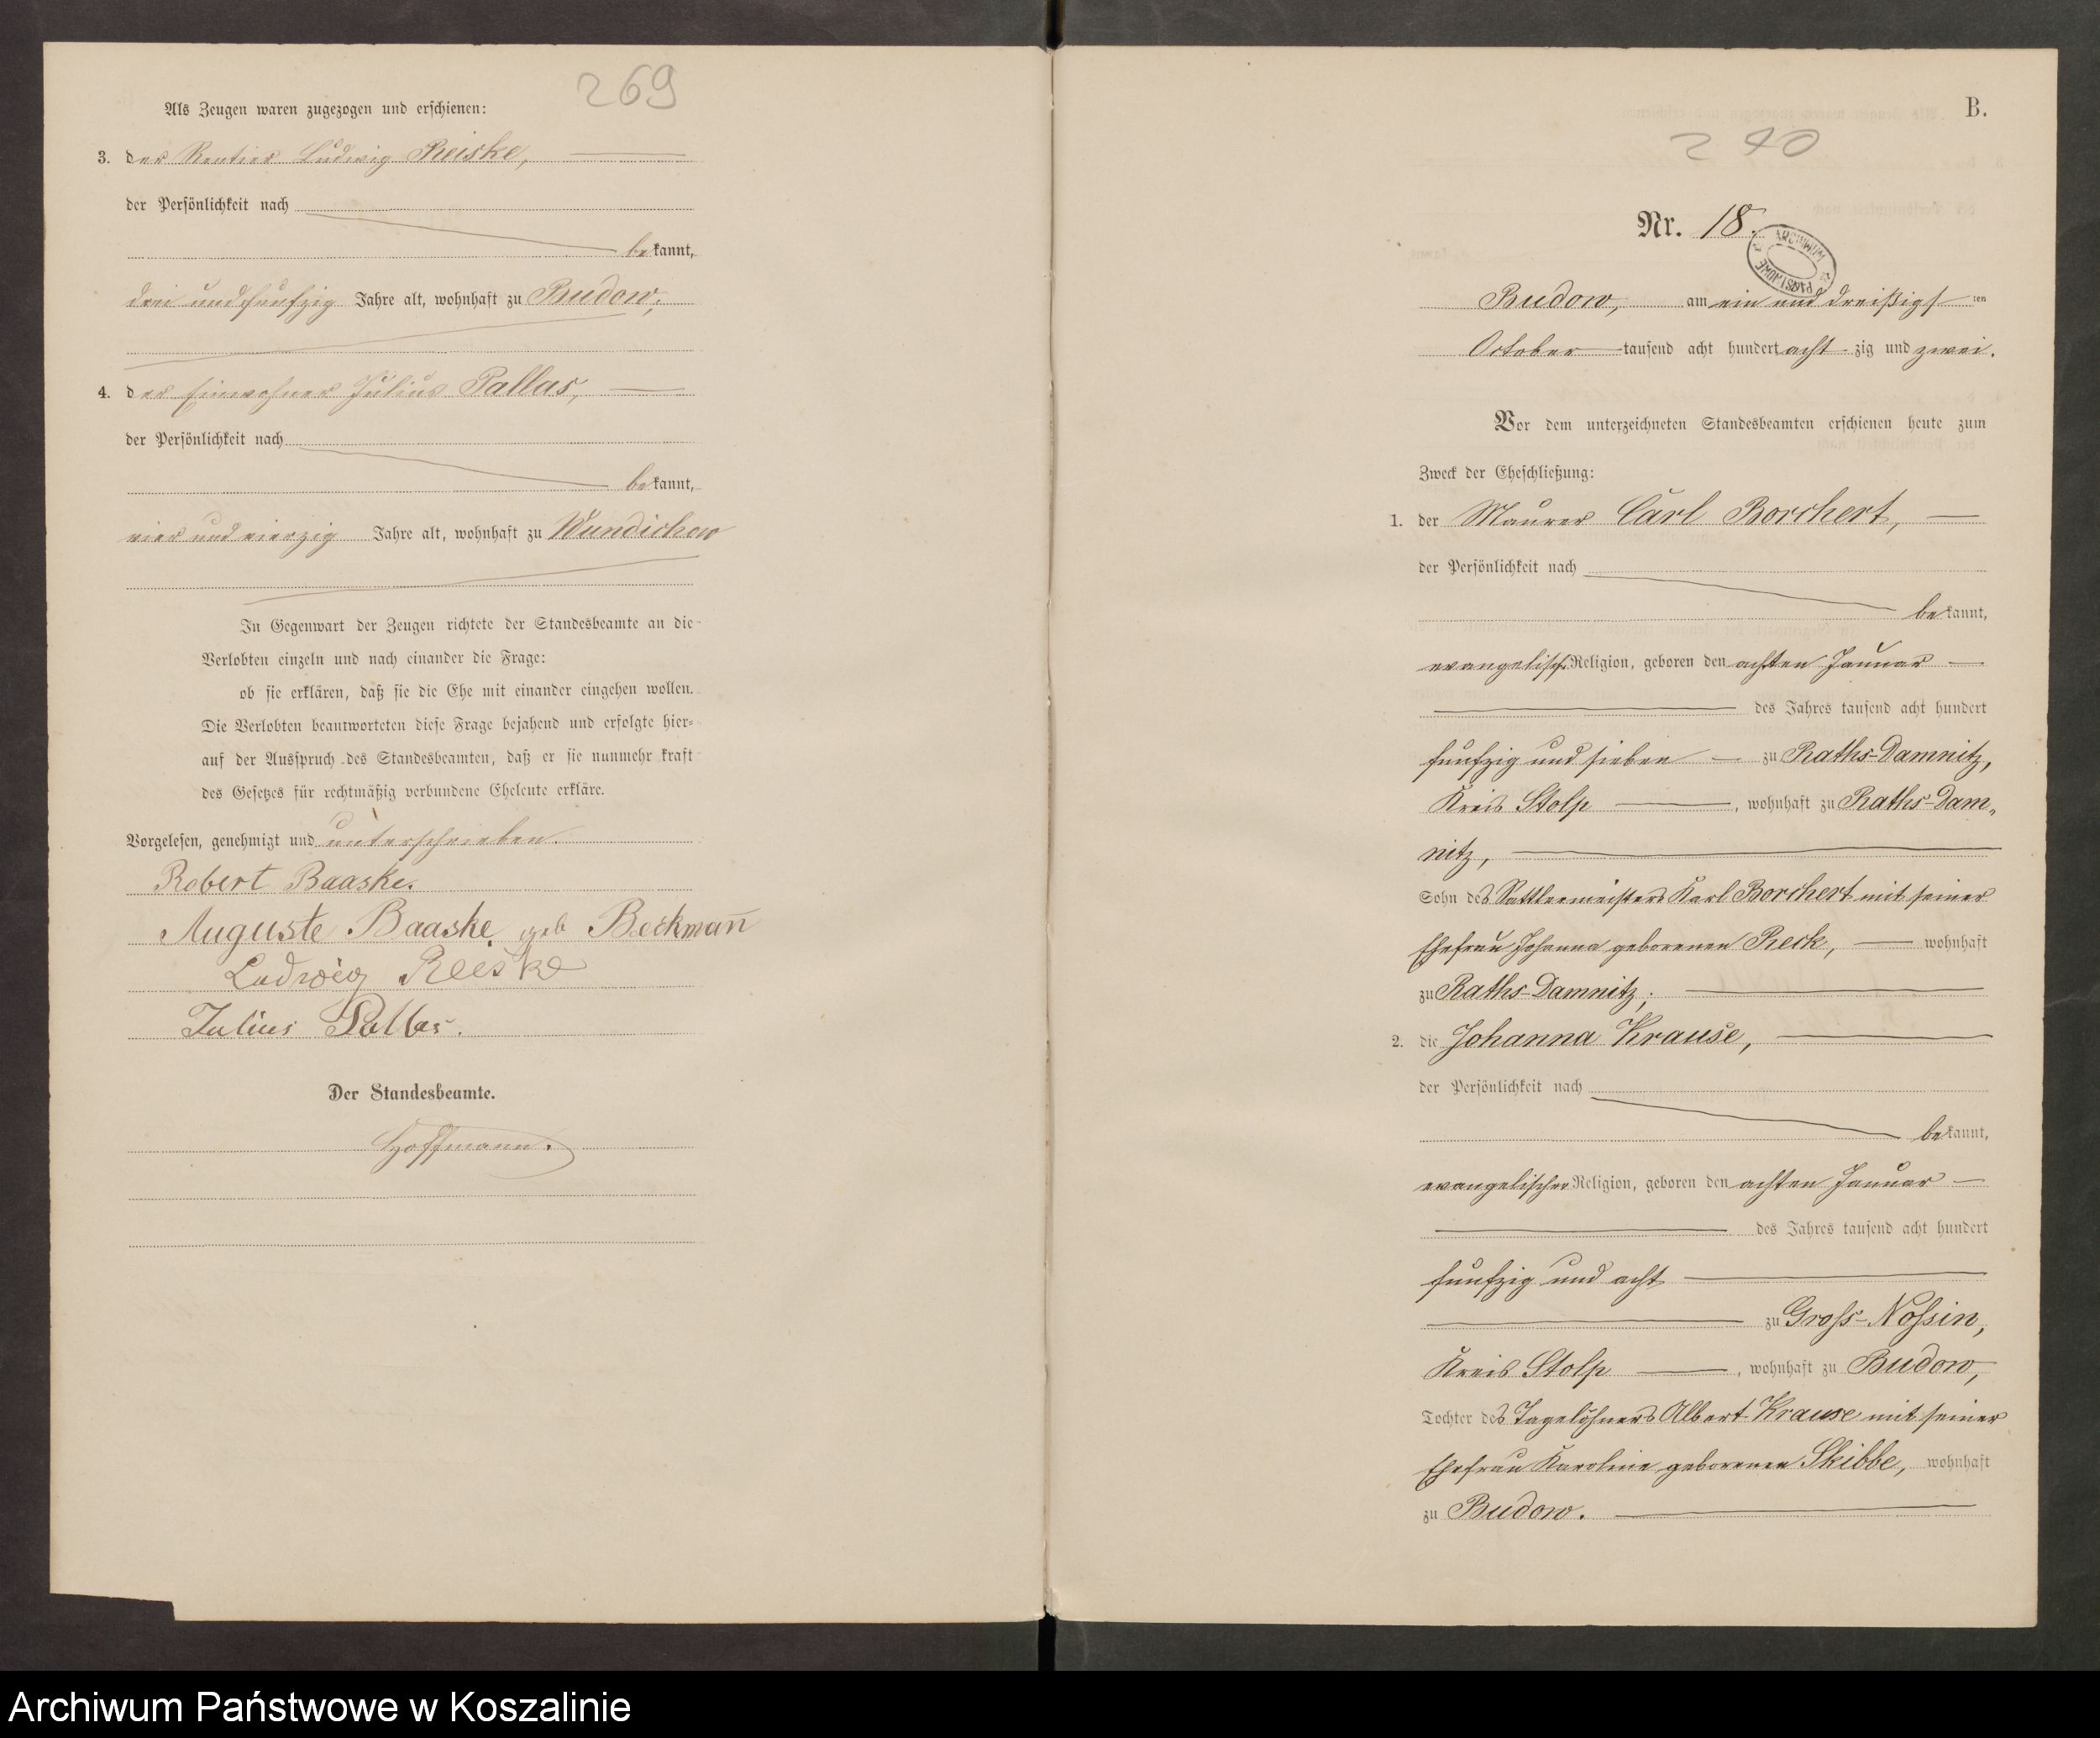 269
Als Zeugen waren zugezogen und erschienen:
3. der Rentier Ludwig Reiske,
der Persönlichkeit nach
bekannt,
drei und funfzig Jahre alt, wohnhaft zu Budow;
4. der Einwohner Julius Pallas,
der Persönlichkeit nach
bekannt,
vier und vierzig Jahre alt, wohnhaft zu Wundichow
In Gegenwart der Zeugen richtete der Standesbeamte an die
Verlobten einzeln und nach einander die Frage:
ob sie erklären, daß sie die Ehe mit einander eingehen wollen.
Die Verlobten beantworteten diese Frage bejahend und erfolgte hier-
auf der Ausspruch des Standesbeamten, daß er sie nunmehr kraft
des Gesetzes für rechtmäßig verbundene Eheleute erkläre.
Vorgelesen, genehmigt und unterschrieben.
Robert Baaske.
Auguste Baaske geb Beckman̄
Ludwig Reiske
Julius Pallas.
Der Standesbeamte.
Hoffmann.
B.
270
Nr. 18.
ARCHIWUM PAŃSTWOWE
Budow, am ein und dreißigsten
October tausend acht hundert acht zig und zwei.
Vor dem unterzeichneten Standesbeamten erschienen heute zum
Zweck der Eheschließung:
1. der Maurer Carl Borchert,
der Persönlichkeit nach
bekannt,
evangelisch. Religion, geboren den achten Januar
des Jahres tausend acht hundert
funfzig und sieben zu Raths-Damnitz,
Kreis Stolp, wohnhaft zu Raths-Dam„
nitz,
Sohn des Sattlermeisters Karl Borchert mit seiner
Ehefrau Johanna geborenen Reck, wohnhaft
zu Raths-Damnitz;
2. die Johanna Krause,
der Persönlichkeit nach
bekannt,
evangelischer Religion, geboren den achten Januar
des Jahres tausend acht hundert
funfzig und acht
zu Gross-Nossin,
Kreis Stolp, wohnhaft zu Budow,
Tochter des Tagelöhners Albert Krause mit seiner
Ehefrau Karoline geborenen Skibbe, wohnhaft
zu Budow.
Archiwum Państwowe w Koszalinie